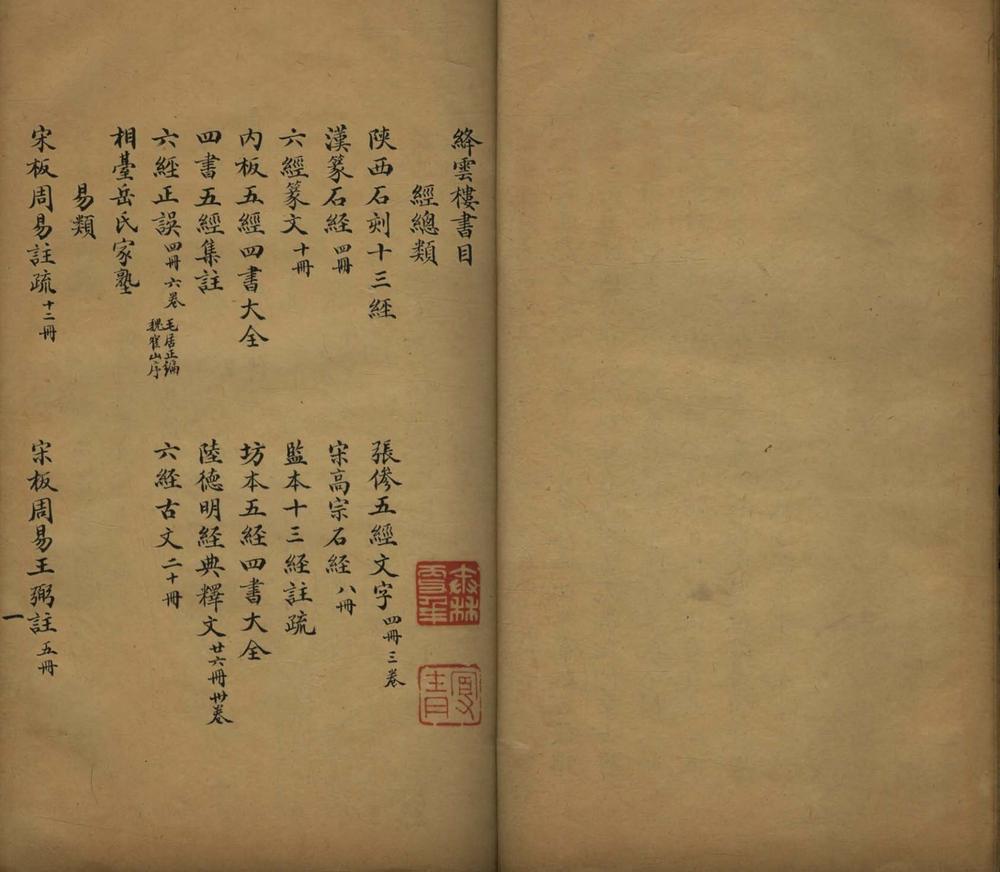 絳雲樓書目
經總類
陝西石刻十三經
張傪五經文字 四冊 三卷
漢篆石経 四冊
宋高宗石経 八冊
六經篆文 十冊
監本十三経註疏
内板五經四書大全
坊本五経四書大全
四書五經集註
陸德明経典釋文 廿六冊 卅卷
六經正誤 四冊 六卷 毛居正編 魏崔山序
六経古文 二十冊
相臺岳氏家塾
易類
宋板周易註疏 十二冊
宋板周易王弼註 五冊
一